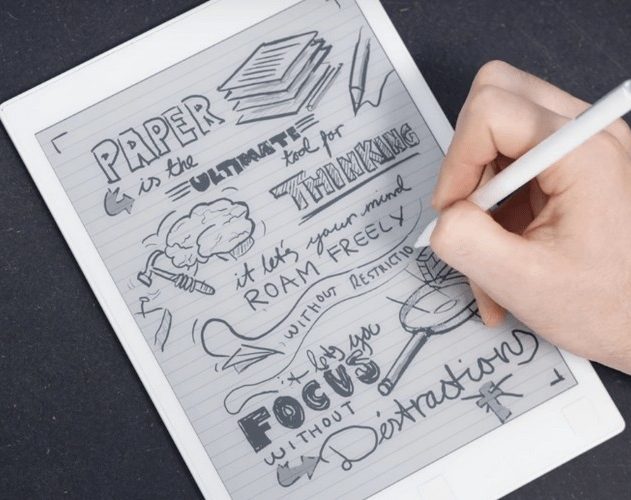 PAPER
is the
ULTIMATE
tool for
THINKING
it let's your mind
ROAM FREELY
WITHOUT RESTRICTIO
it let's you
FOCUS
WITHOUT
Distractions